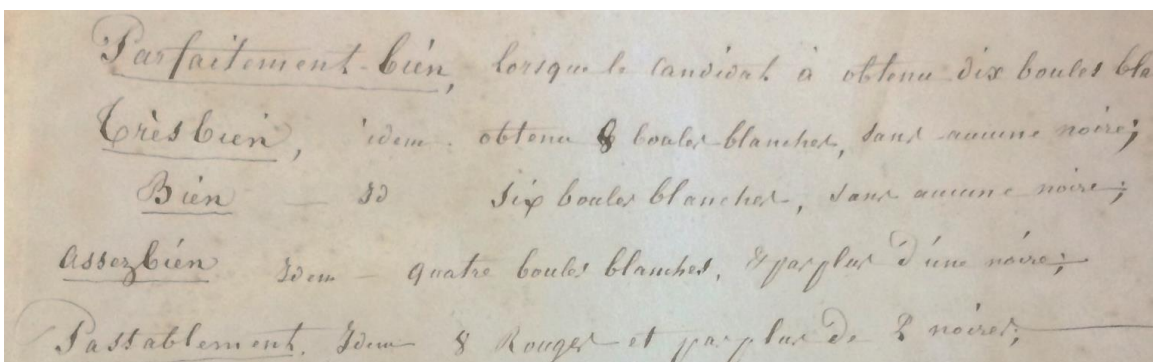 Parfaitement-bien, lorsque le candidat à obtenu dix boules bla
Très bien, idem - obtenu 8 boules blanches, sans aucune noire;
Bien — Id six boules blanches, sans aucune noire;
Assez bien Idem — quatre boules blanches, & pas plus d'une noire;
Passablement. Idem — 8 Rouges et pas plus de 2 noires;